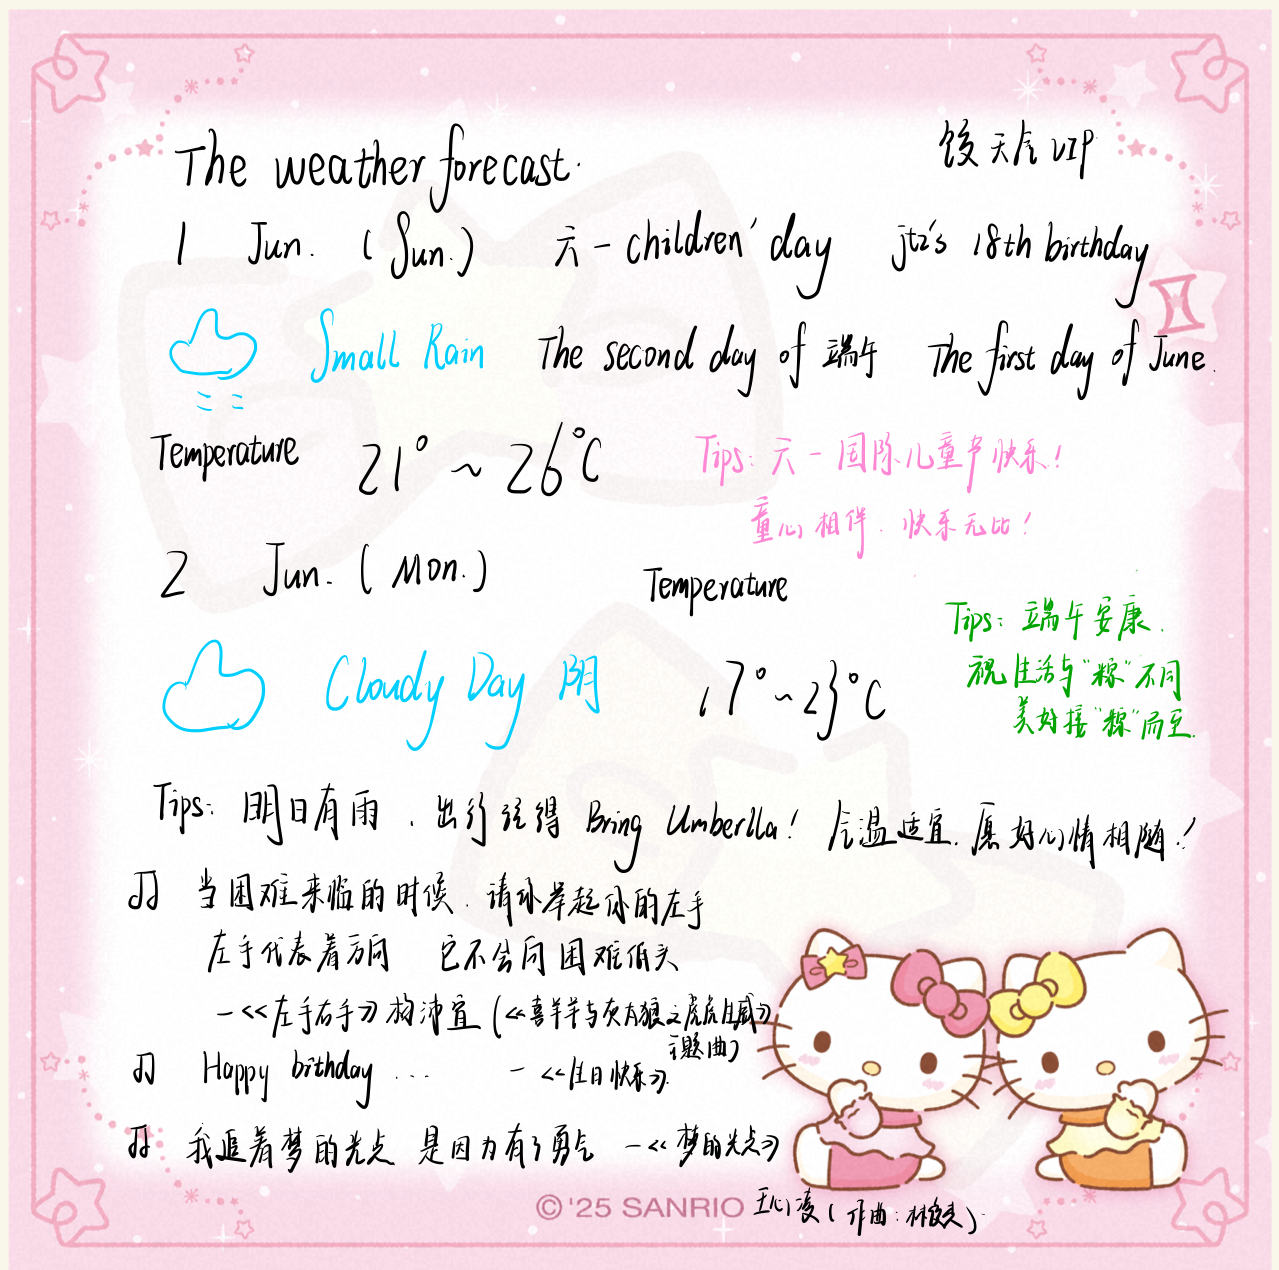 The weather forecast.
饺天气VIP
1 Jun. (Sun.) 六一 children' day jtz's 18th birthday
Small Rain The second day of 端午 The first day of June.
Temperature 21°~26°C
Tips: 六一国际儿童节快乐!
童心相伴.快乐无比!
2 Jun. (Mon.) Temperature
Cloudy Day 阴 17°~23°C
Tips: 端午安康.
祝生活与"粽"不同
美好接"粽"而至.
Tips: 明日有雨.出行记得 Bring Umberlla! 气温适宜.愿好心情相随!
当困难来临的时候.请你举起你的左手
左手代表着方向 它不会向困难低头
—<<左手右手>> 杨沛宜 (<<喜羊羊与灰太狼之虎虎生威>>
主题曲)
Happy bithday ... — <<生日快乐>>.
我追着梦的光点 是因为有了勇气 —<<梦的光点>>
王心凌 (作曲:林俊杰)
©'25 SANRIO